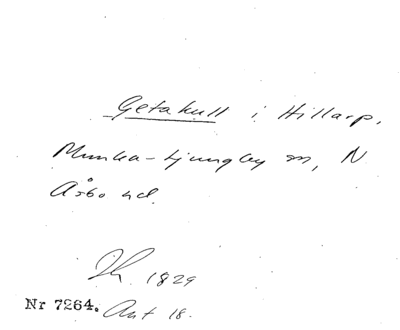 Getakull i Hillarp,
Munka-Ljungby sn, N
Åsbo hd.
Jh. 1829
Nr 7264. Ant 18.